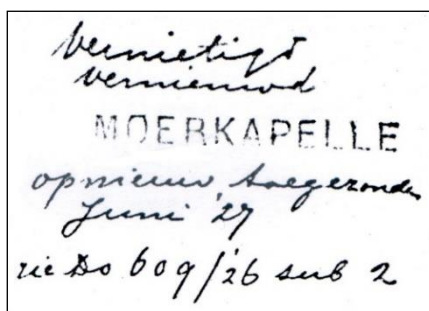 vernietigd
vernieuwd
MOERKAPELLE
opnieuw toegezonden
Juni '27
zie Do 609/'26 sub 2